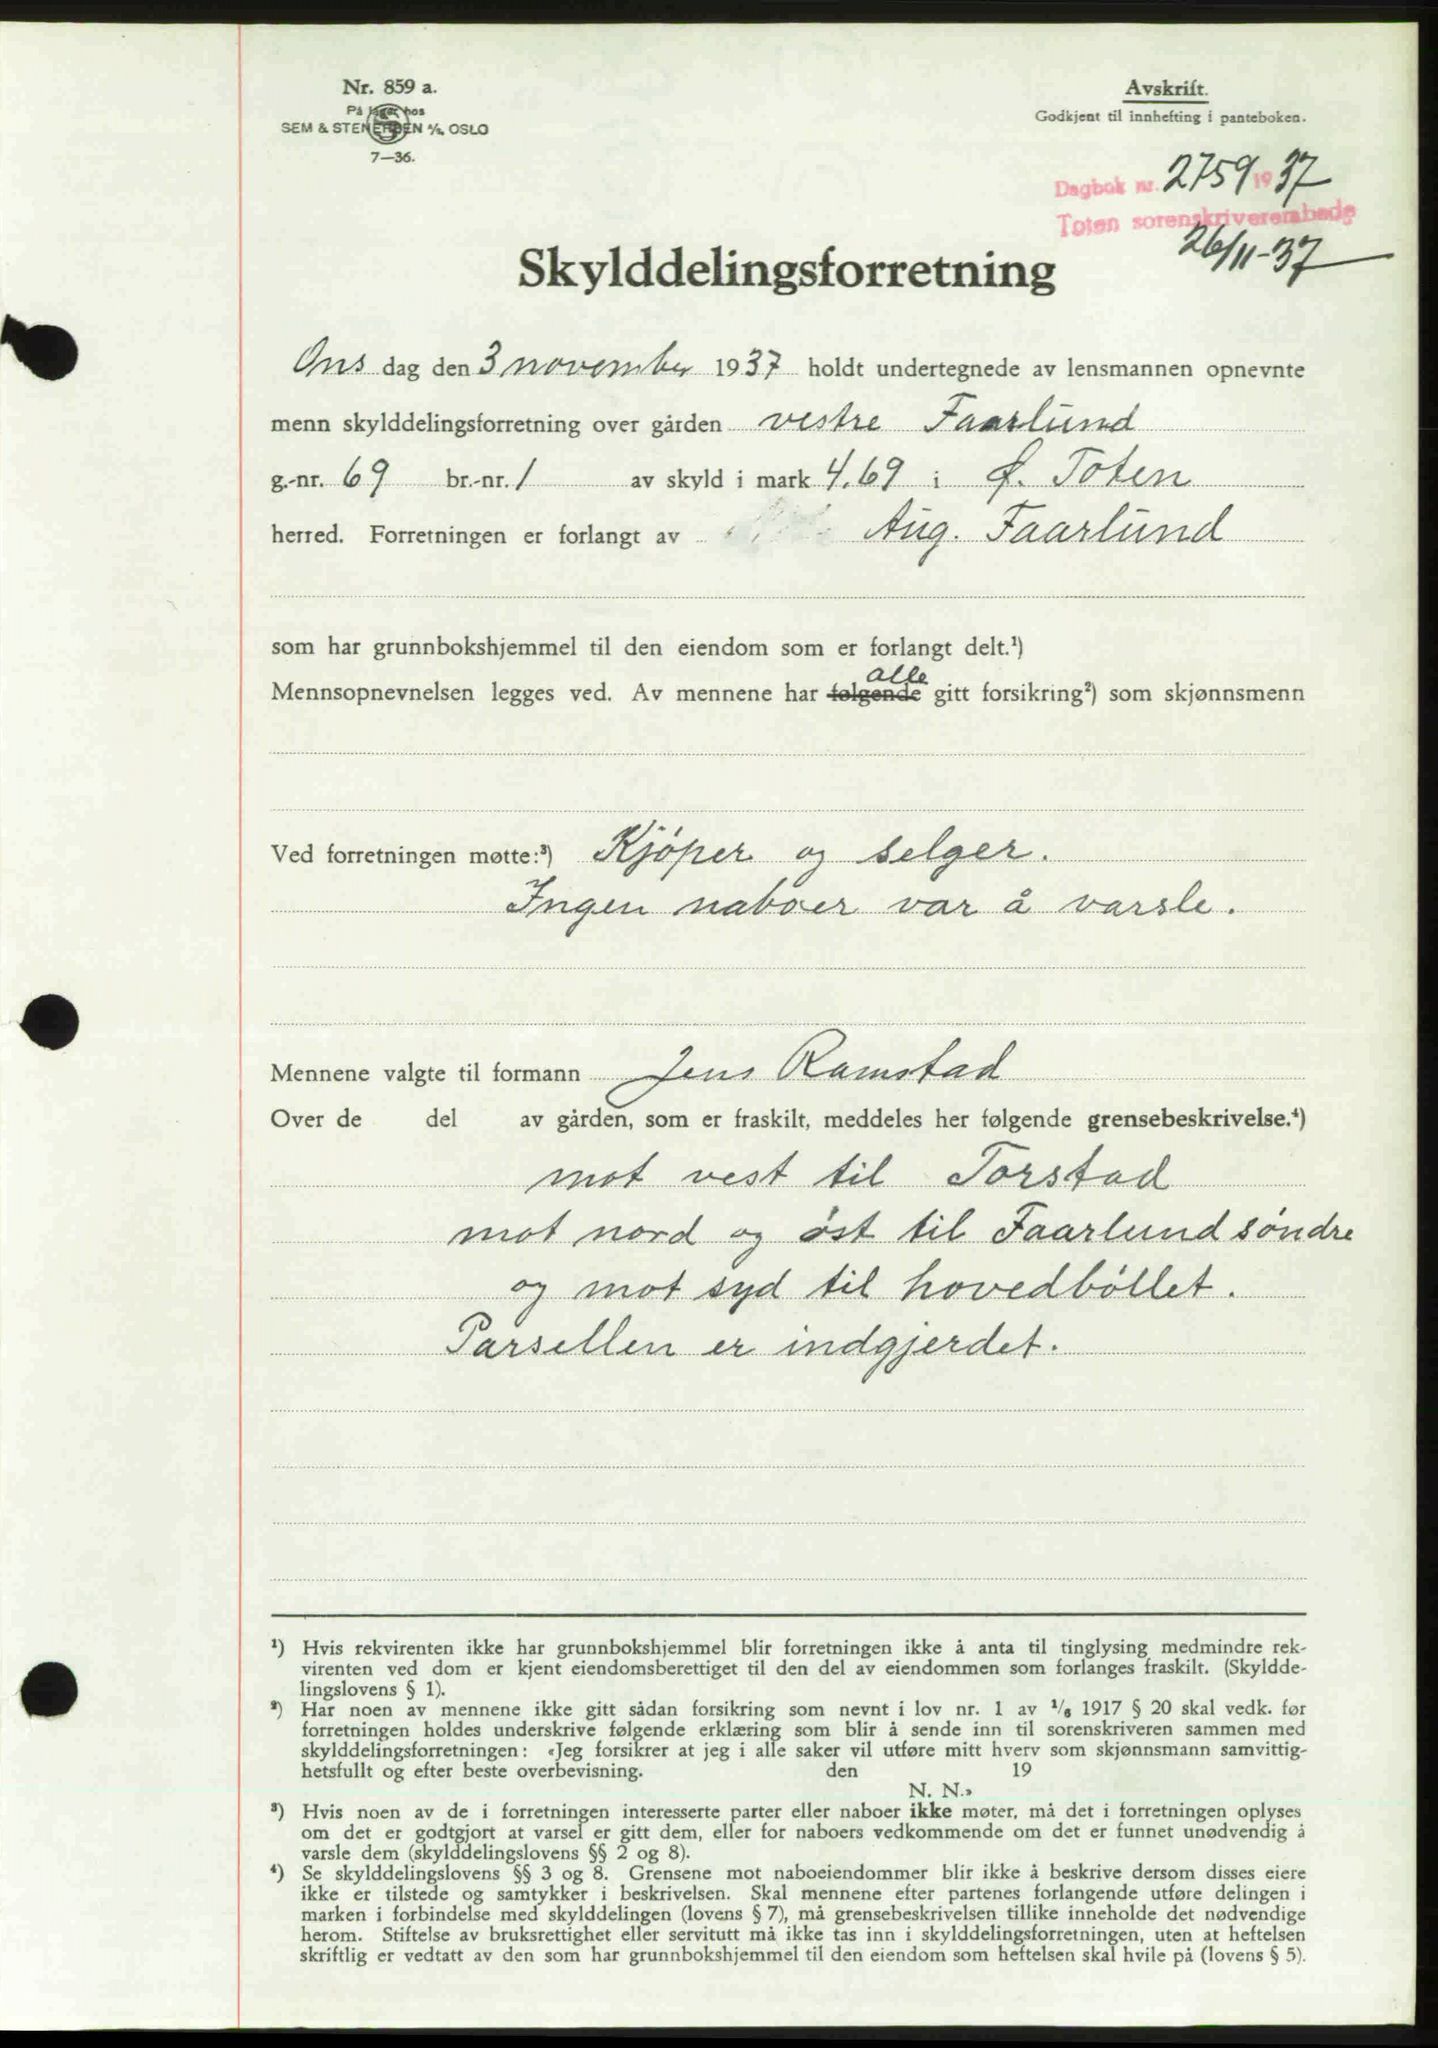 Nr. 859 a.
På lager hos
SEM & STENERSEN A/S. OSLO
7—36.
Avskrift.
Godkjent til innhefting i panteboken.
Dagbok nr. 2759 1937
Toten sorenskriverembede
26/11-37
Skylddelingsforretning
Ons dag den 3 november 1937 holdt undertegnede av lensmannen opnevnte
menn skylddelingsforretning over gården vestre Faarlund
g.-nr. 69 br.-nr. 1 av skyld i mark 4.69 i Ø. Toten
herred. Forretningen er forlangt av Aug. Faarlund
som har grunnbokshjemmel til den eiendom som er forlangt delt.¹)
alle
Mennsopnevnelsen legges ved. Av mennene har følgende gitt forsikring²) som skjønnsmenn
Ved forretningen møtte:³) Kjöper og selger.
Ingen naboer var å varsle.
Mennene valgte til formann Jens Ramstad
Over de del av gården, som er fraskilt, meddeles her følgende grensebeskrivelse.⁴)
mot vest til Torstad
mot nord og öst til Faarlund söndre
og mot syd til hovedböllet.
Parsellen er indgjerdet.
¹) Hvis rekvirenten ikke har grunnbokshjemmel blir forretningen ikke å anta til tinglysing medmindre rek-
virenten ved dom er kjent eiendomsberettiget til den del av eiendommen som forlanges fraskilt. (Skyldde-
lingslovens § 1).
²) Har noen av mennene ikke gitt sådan forsikring som nevnt i lov nr. 1 av ¹/₆ 1917 § 20 skal vedk. før
forretningen holdes underskrive følgende erklæring som blir å sende inn til sorenskriveren sammen med
skylddelingsforretningen: «Jeg forsikrer at jeg i alle saker vil utføre mitt hverv som skjønnsmann samvittig-
hetsfullt og efter beste overbevisning. den 19
N. N.»
³) Hvis noen av de i forretningen interesserte parter eller naboer ikke møter, må det i forretningen oplyses
om det er godtgjort at varsel er gitt dem, eller for naboers vedkommende om det er funnet unødvendig å
varsle dem (skylddelingslovens §§ 2 og 8).
⁴) Se skylddelingslovens §§ 3 og 8. Grensene mot naboeiendommer blir ikke å beskrive dersom disses eiere
ikke er tilstede og samtykker i beskrivelsen. Skal mennene efter partenes forlangende utføre delingen i
marken i forbindelse med skylddelingen (lovens § 7), må grensebeskrivelsen tillike inneholde det nødvendige
herom. Stiftelse av bruksrettighet eller servitutt må ikke tas inn i skylddelingsforretningen, uten at heftelsen
skriftlig er vedtatt av den som har grunnbokshjemmel til den eiendom som heftelsen skal hvile på (lovens § 5).